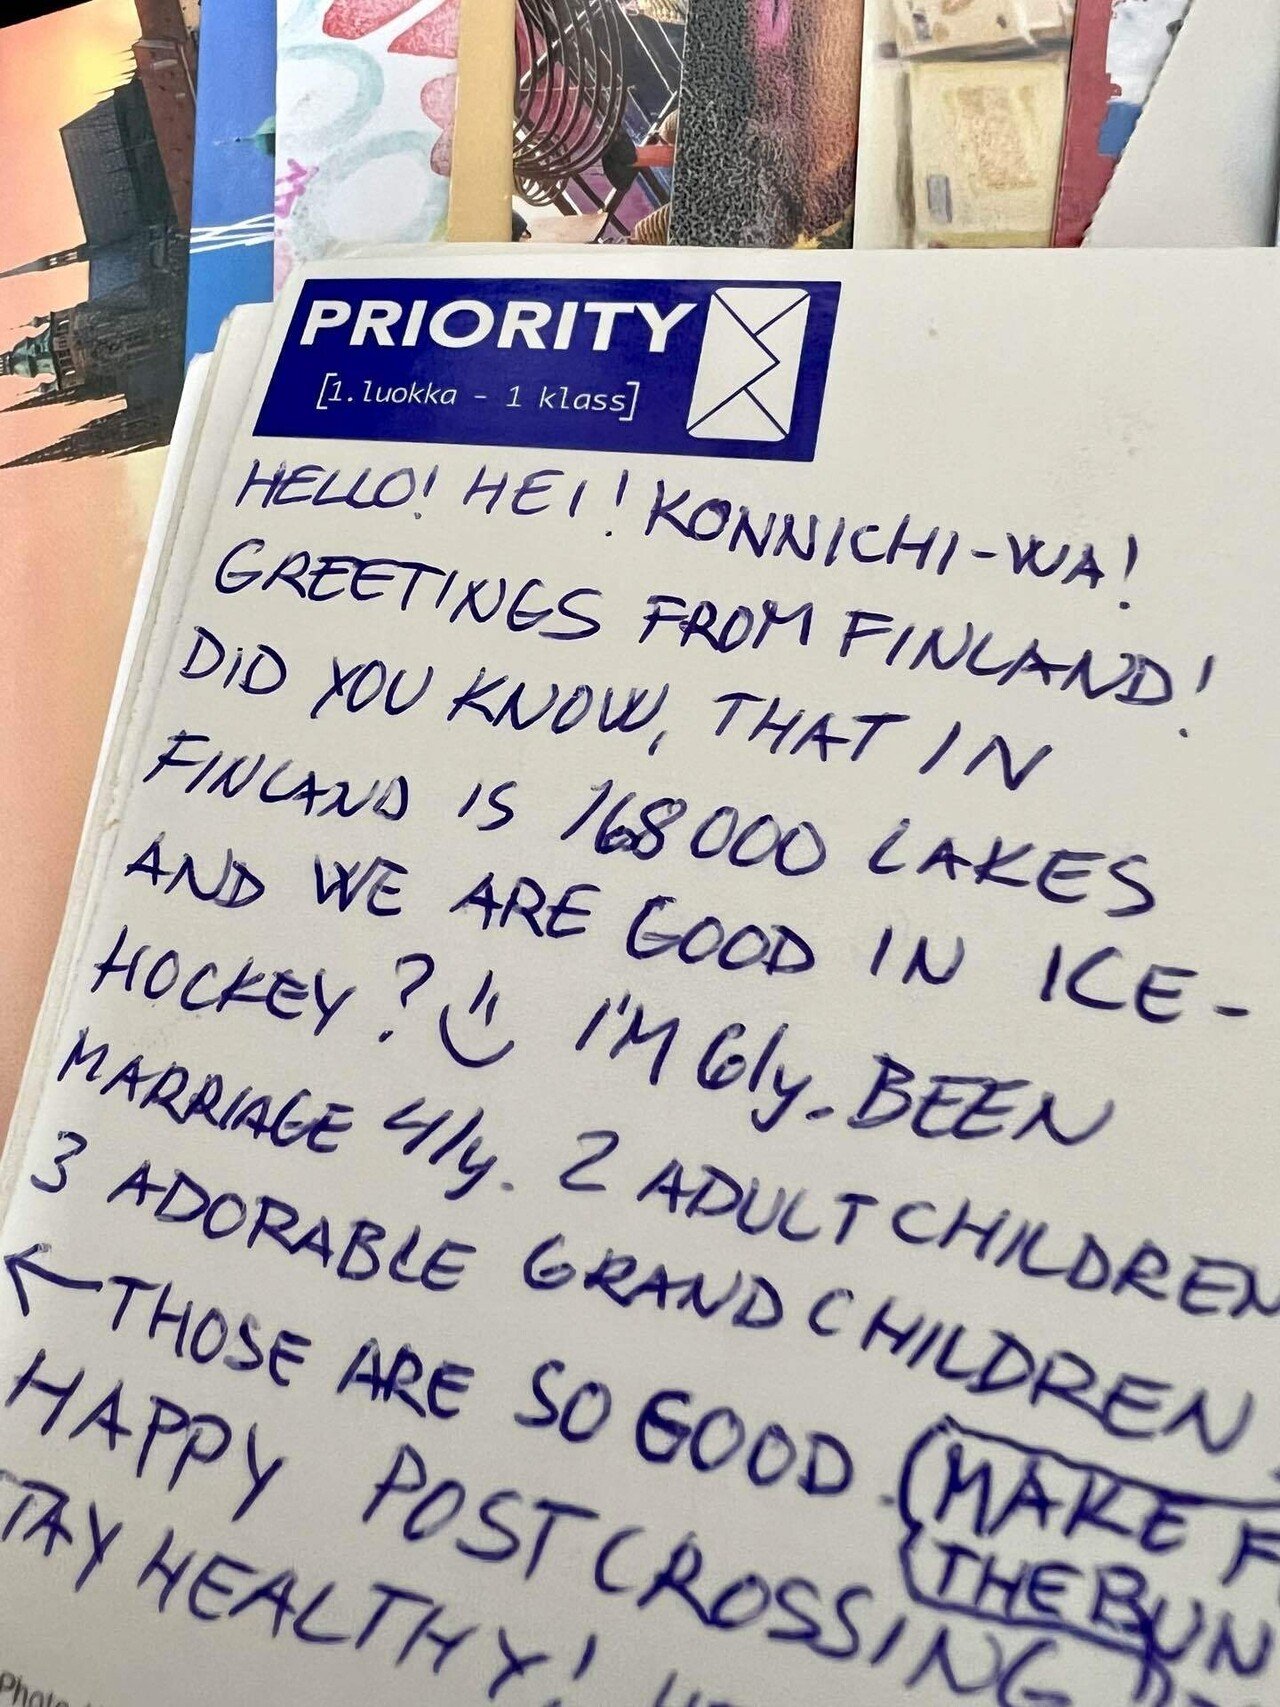 PRIORITY
[1.luokka - 1 klass]
HELLO! HEI! KONNICHI-WA!
GREETINGS FROM FINLAND!
DiD YOU KNOW, THAT IN
FINLAND IS 168000 LAKES
AND WE ARE GOOD IN ICE-
HOCKEY? I'M 61y. BEEN
MARRIAGE 41y. 2 ADULT CHILDREN
3 ADORABLE GRANDCHILDREN
← THOSE ARE SO GOOD. (MAKE
THE BUN
HAPPY POSTCROSSING
TAY HEALTHY!
Photo